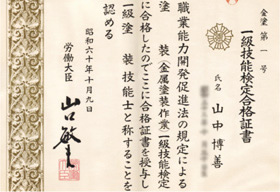 金塗第一号
一級技能検定合格証書
氏名 山中博善
職業能力開発促進法の規定による
一級塗装(金属塗装作業)技能検定
に合格したのでここに合格証書を授与し
一級塗装技能士と称することを
認める
昭和六十年十月九日
労働大臣 山口敏夫